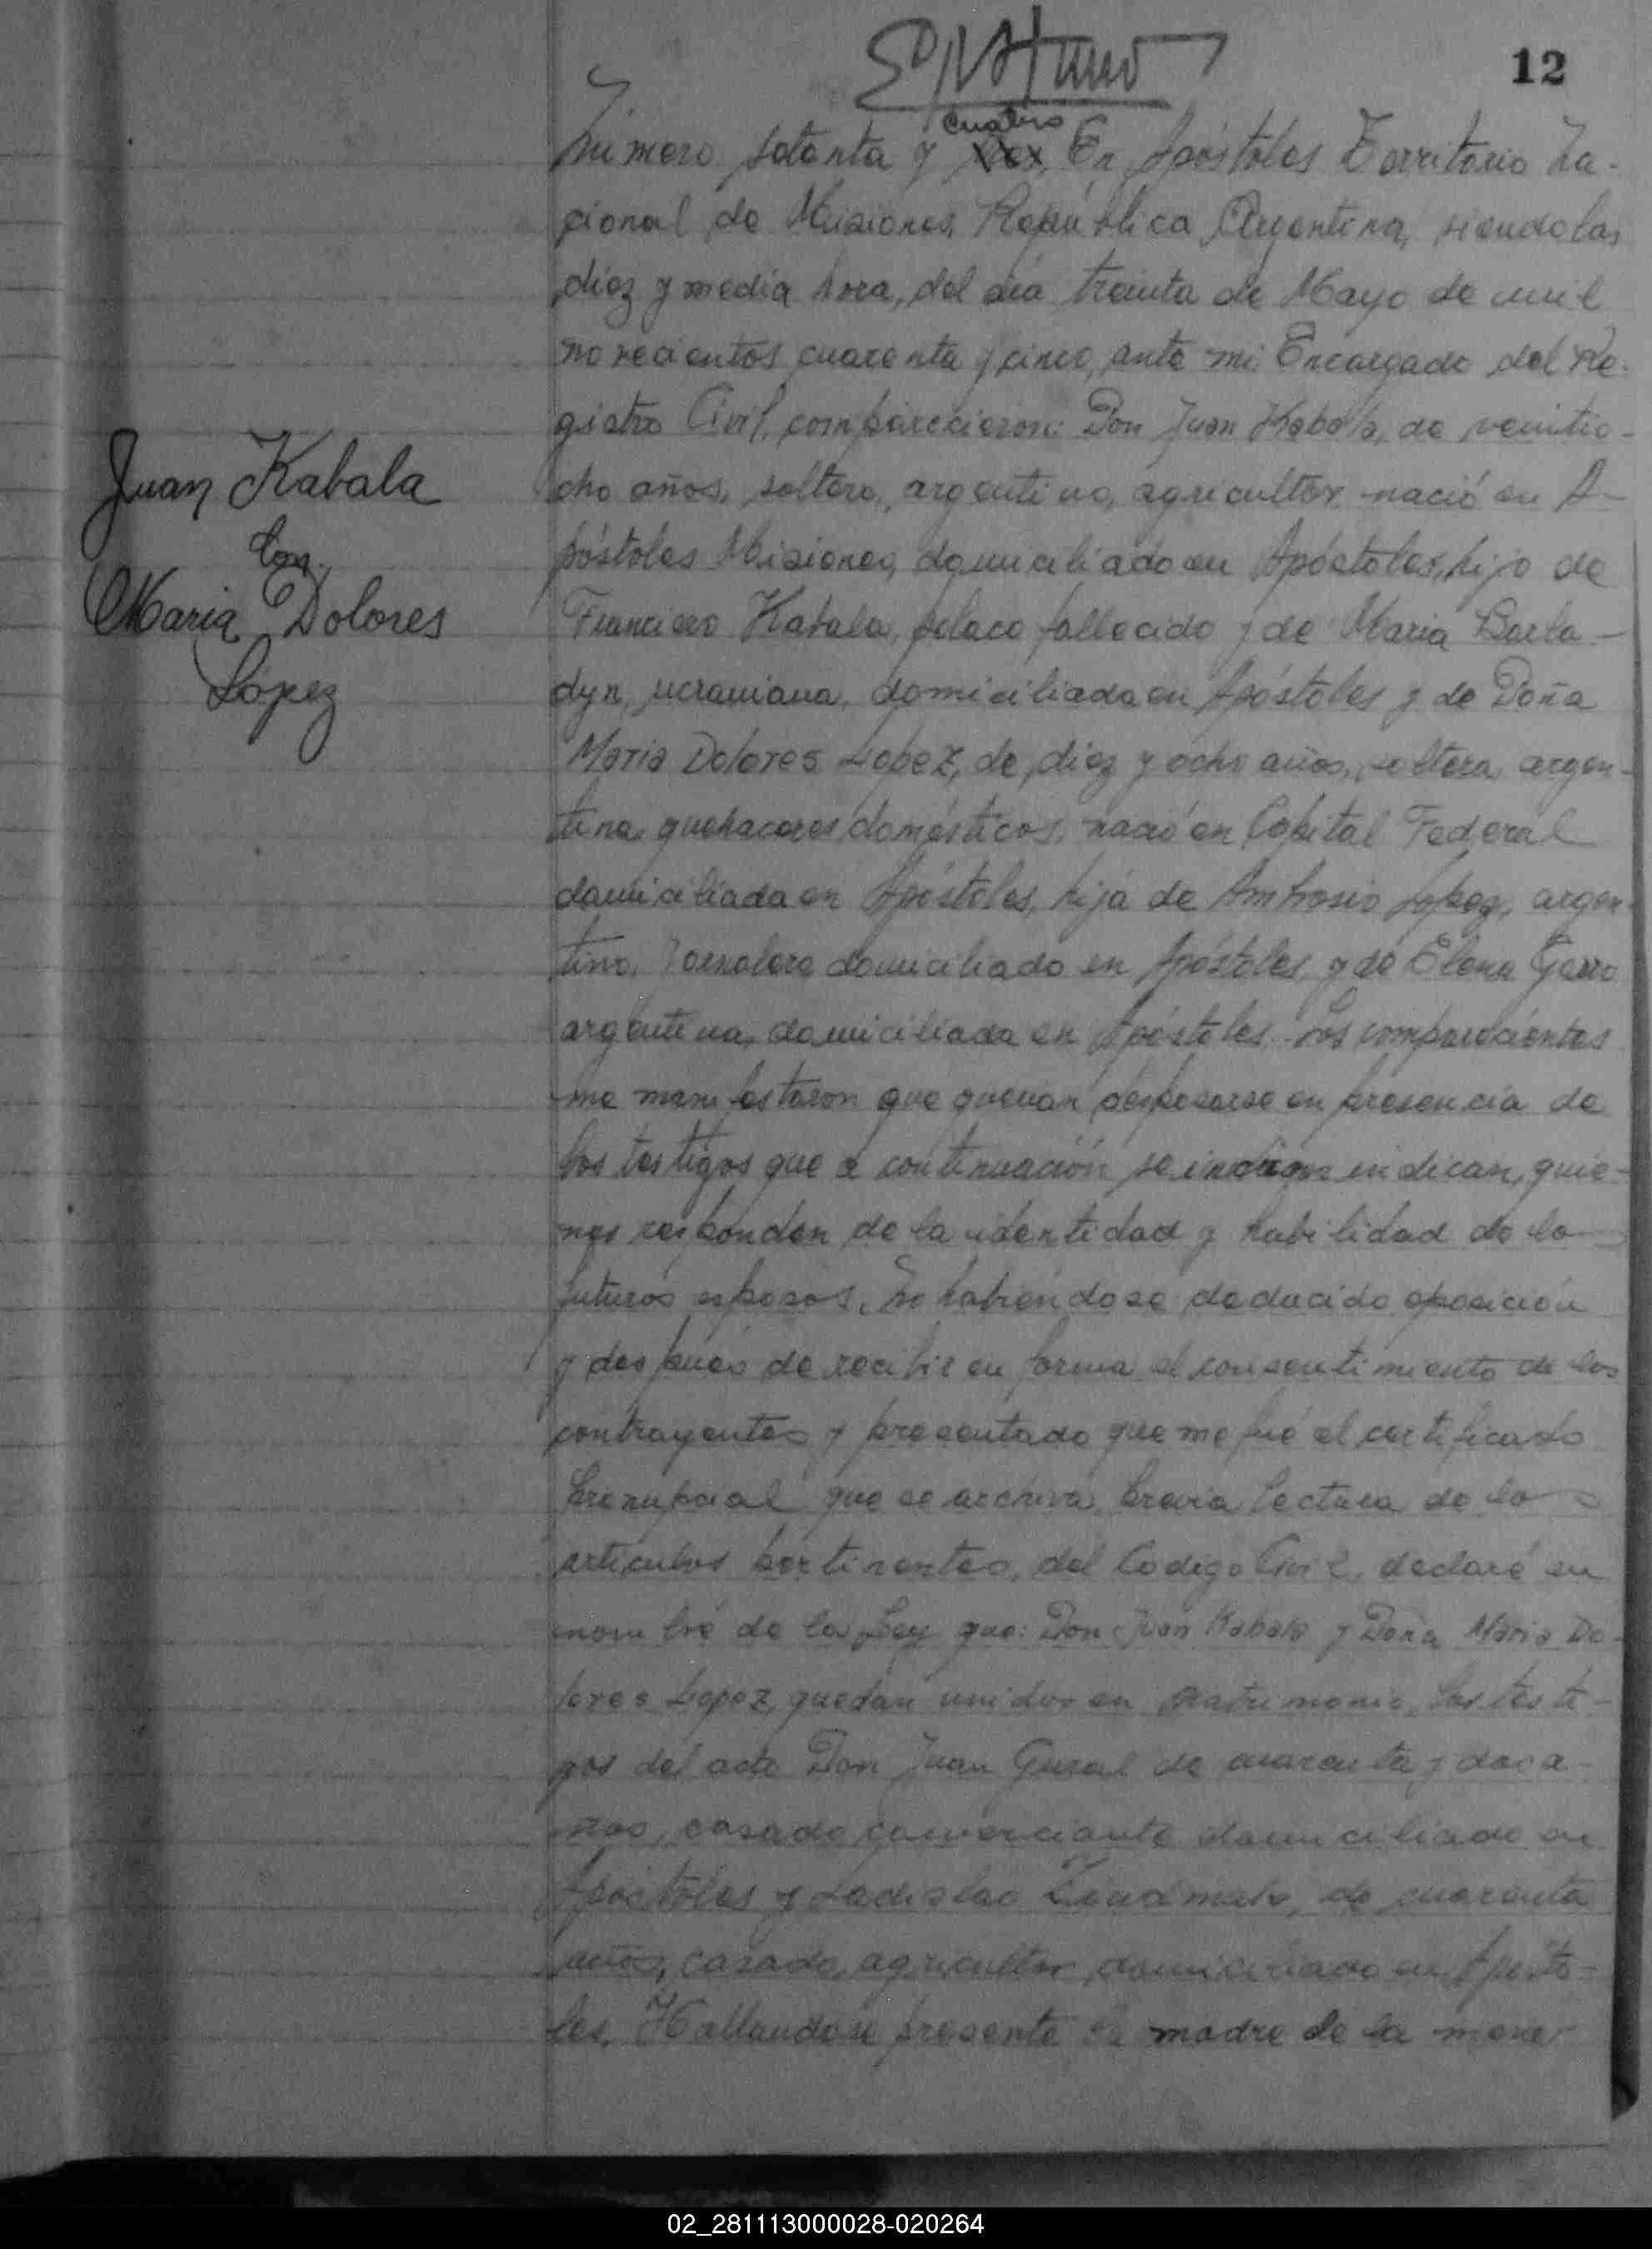 12
cuatro
Número setenta y En Apóstoles Territorio Na-
cional de Misiones, República Argentina, siendo las
diez y media hora, del dia treinta de Mayo de mil
novecientos cuarenta y cinco, ante mi Encargado del Re-
gistro Civil, comparecieron: Don Juan Kabala, de veintio-
cho años, soltero, argentino, agricultor, nació en A-
póstoles Misiones, domiciliado en Apóstoles, hijo de
Francisco Kabala, polaco fallecido y de Maria Barla-
dyn, ucraniana, domiciliada en Apóstoles y de Doña
Maria Dolores Lopez, de diez y ocho años, soltera, argen-
tina, quehaceres domésticos, nació en Capital Federal
domiciliada en Apóstoles, hija de Ambrosio Lopez, argen-
tino, Jornalero, domiciliado en Apóstoles, y de Elena
argentina, domiciliada en Apóstoles. Los comparecientes
me manifestaron que querian desposarse en presencia de
los testigos que a continuación se indican, quie-
nes responden de la identidad y habilidad de los
futuros esposos. No habiéndose deducido oposición
y despues de recibir en forma el consentimiento de los
contrayentes y presentado que me fué el certificado
prenupcial que se archiva, previa lectura de los
articulos pertinentes, del Codigo Civil, declaré en
nombre de la Ley que: Don Juan Kabala y Doña Maria Do-
lores Lopez, quedan unidos en matrimonio, Los testi-
gos del acto Don Juan Gural de cuarenta y dos a-
ños, casado, comerciante domiciliado en
Apóstoles y Ladislao de cuarenta
años, casado, agricultor domiciliado en Aposto-
les. Hallandose presente la madre de la meno
Juan Kabala
Con
Maria Dolores
López
02_281113000028-020264